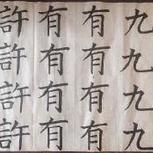 九九九九
有有有有
有有有有
許許許許